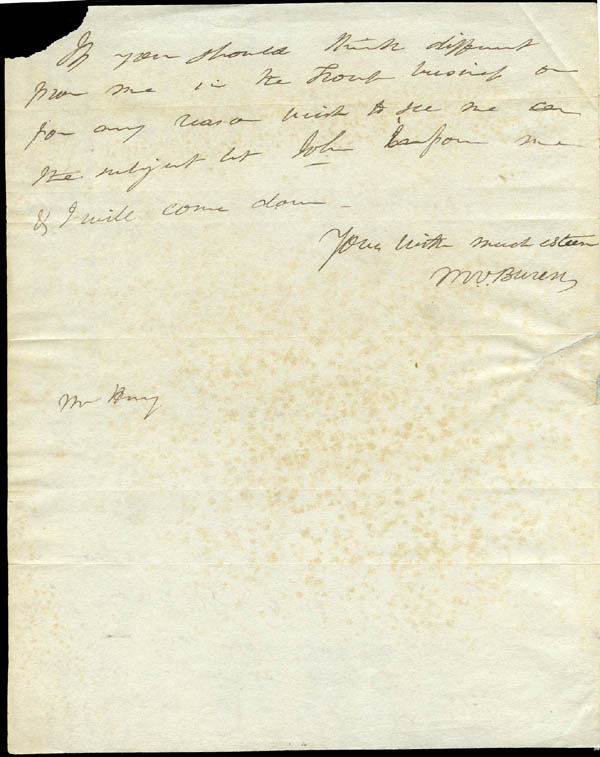 If you should think different
from me in the business or
for any reason wish to see me on
the subject let John me
& I will come down –
Yours with much esteem
M V. Buren
Mr Henry